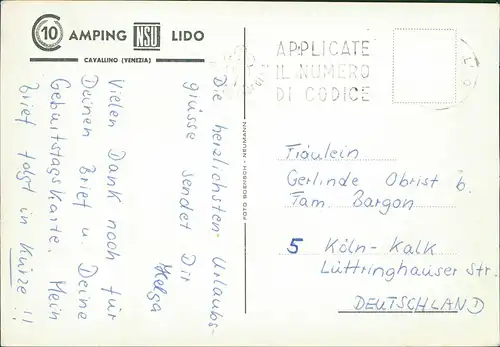 C 10 AMPING NSU LIDO
CAVALLINO (VENEZIA)
APPLICATE
IL NUMERO
DI CODICE
Die herzlichsten Urlaubs-
grüsse sendet Dir
Helga
Vielen Dank noch für
Deinen Brief u. Deine
Geburtstagskarte. Mein
Brief folgt in Kürze!!
FOTO BOENSCH - NEUMANN
Fräulein
Gerlinde Obrist b.
Fam. Bargon
5 Köln-Kalk
Lüttringhauser Str.
DEUTSCHLAND